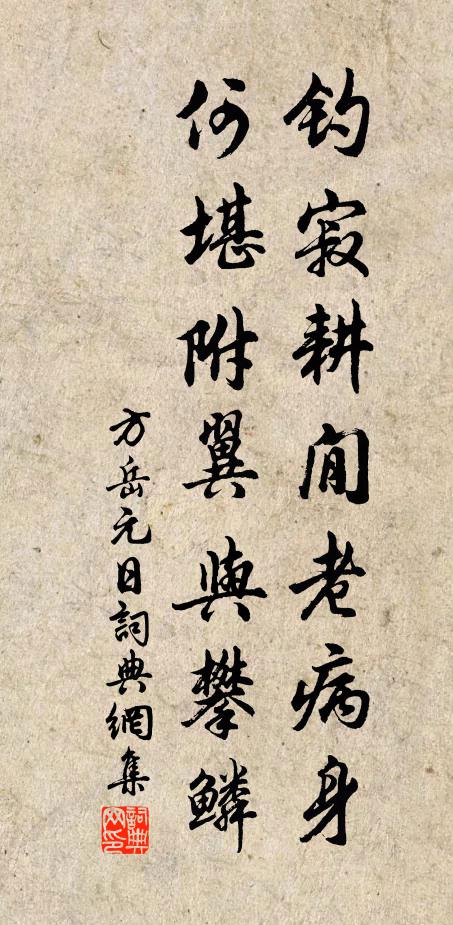 钓寂耕閒老病身
何堪附翼與攀鱗
方岳元日詞典網集
詞典
网印